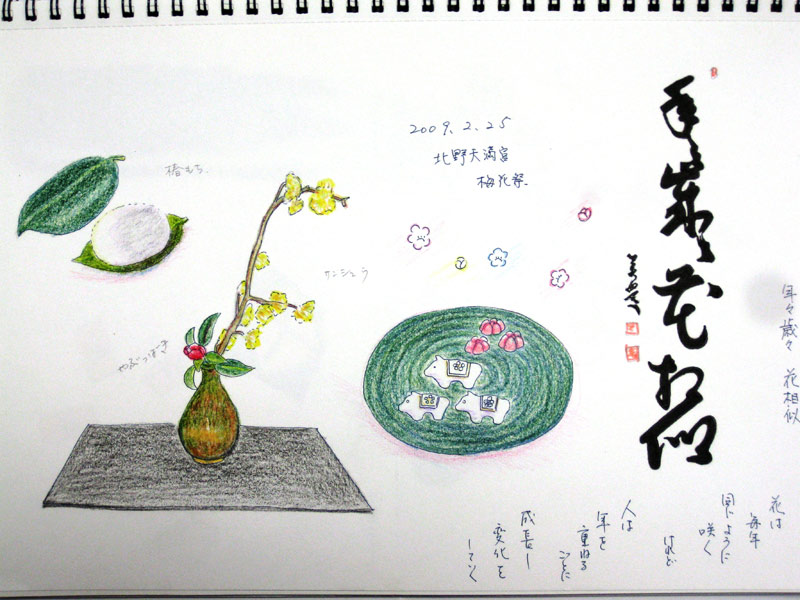 年々歳々花相似
年々歳々 花相似
2009.2.25
北野天満宮
梅花祭
椿もち
サンシュユ
やぶつばき
花は
毎年
同じように
咲く
けれど
人は
年を
重ねる
ごとに
成長し
変化を
していく